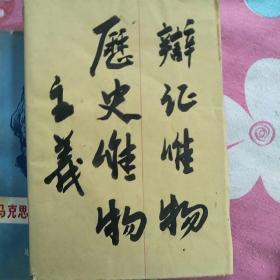 辯证唯物
歷史唯物
主義
马克思